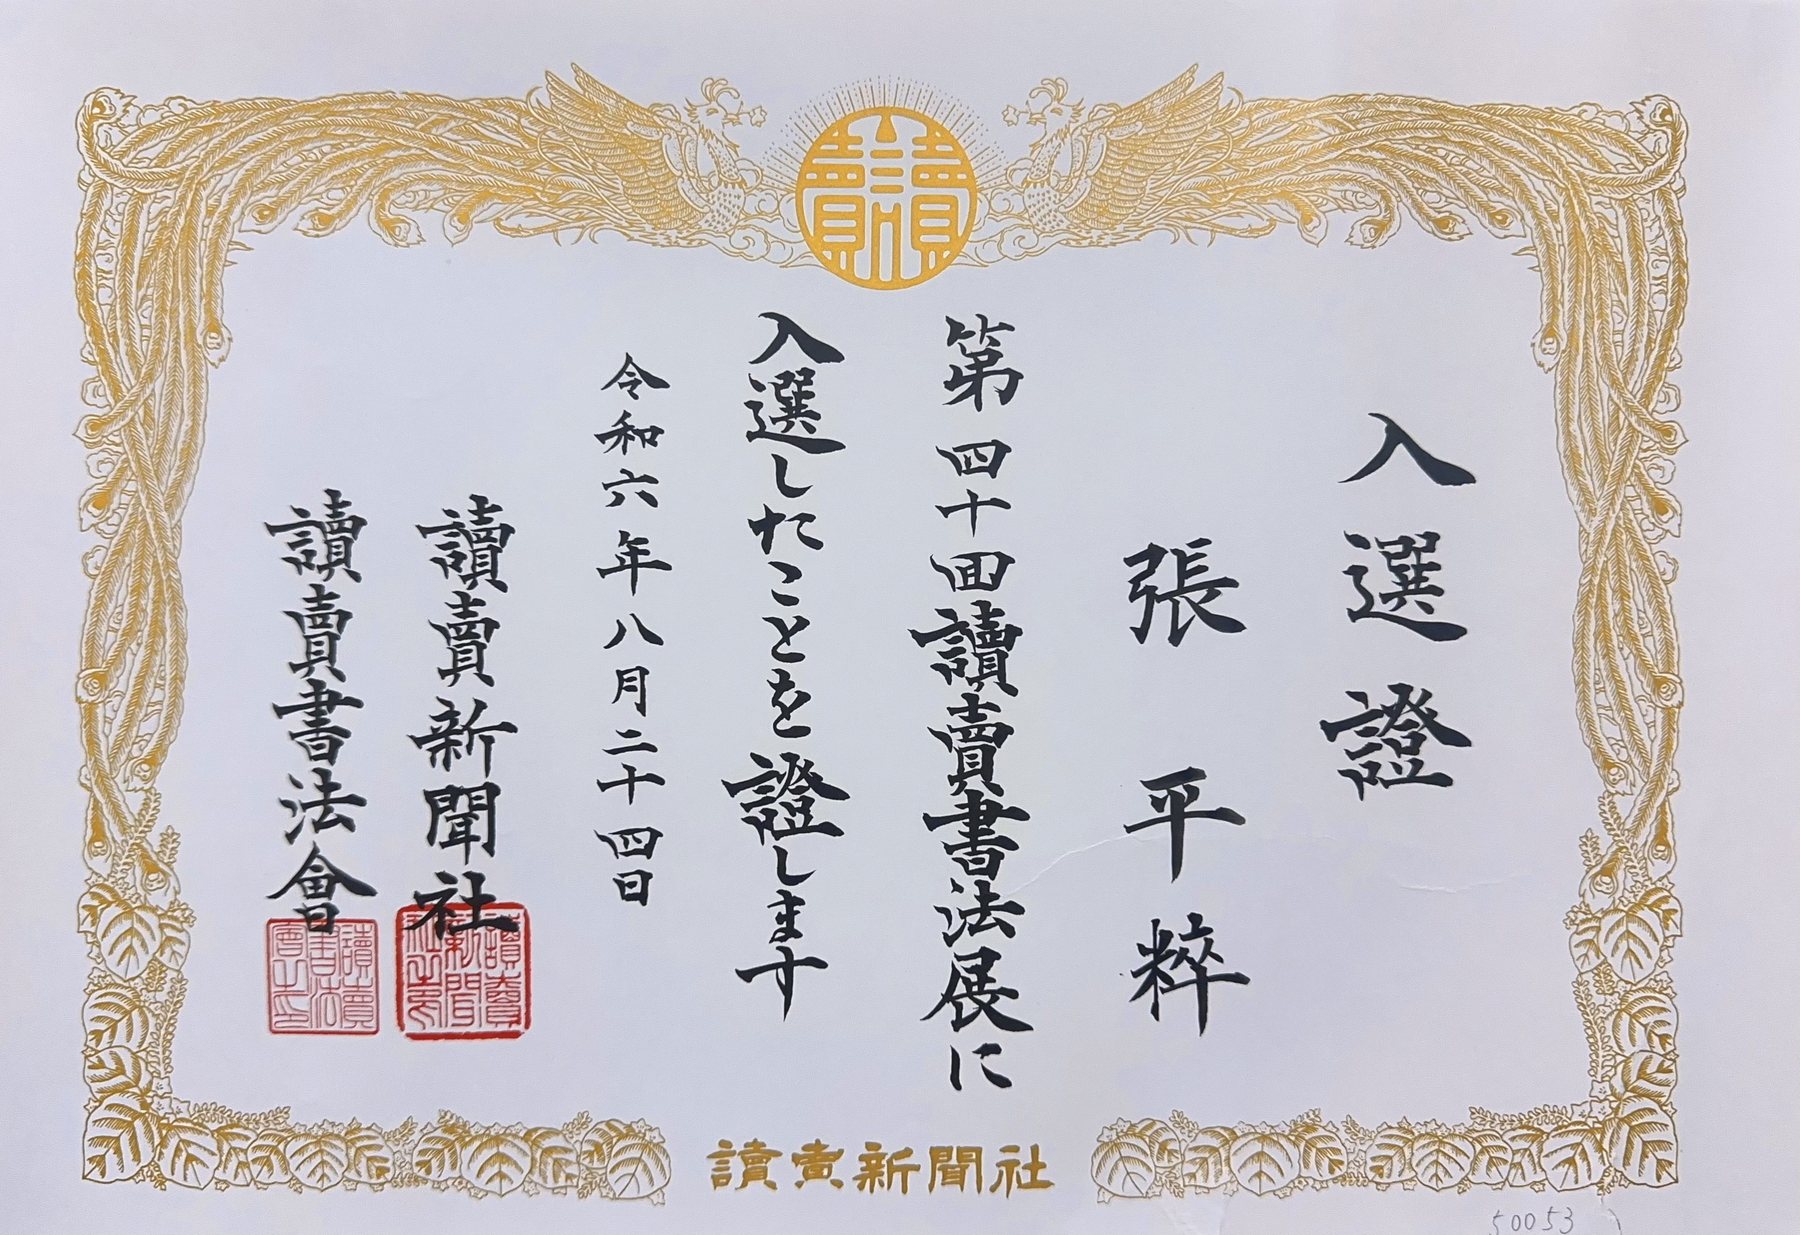 入選證
張平粹
第四十回讀賣書法展に
入選したことを證します
令和六年八月二十四日
讀賣新聞社
讀賣書法會
讀賣新聞社
50053